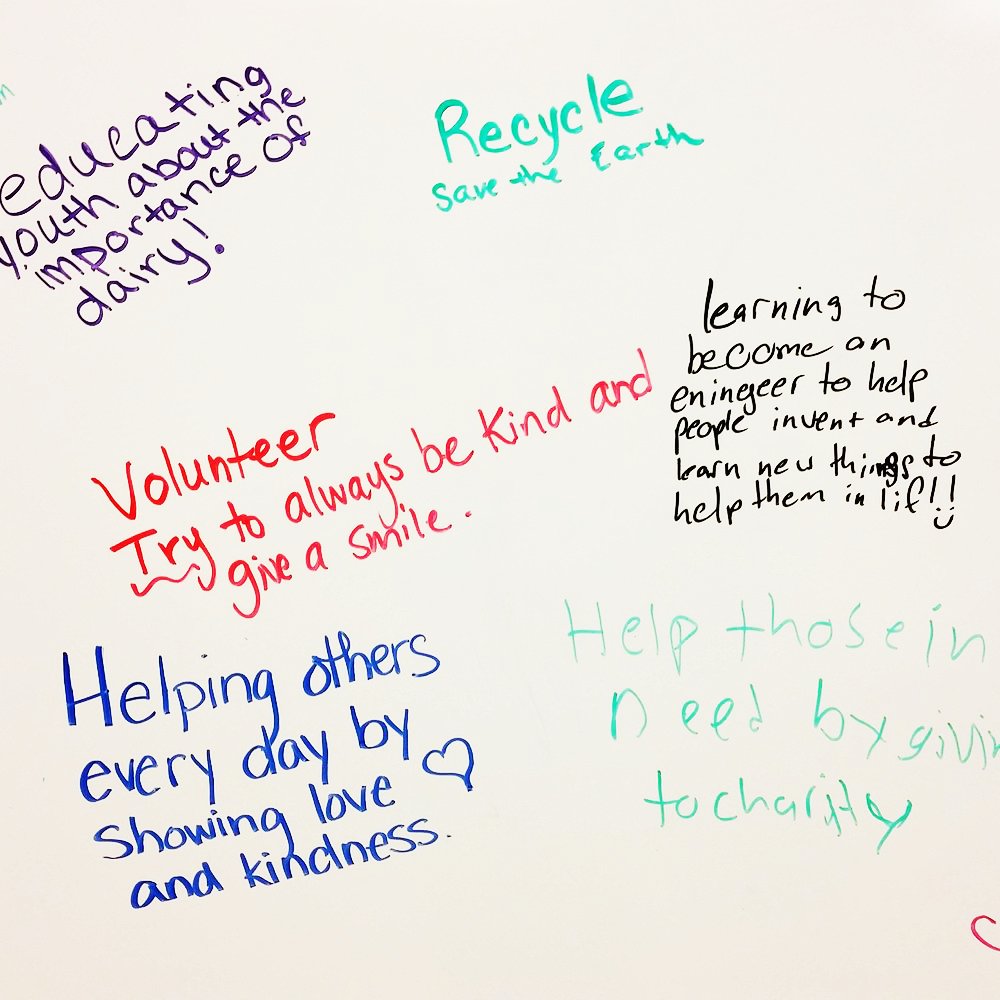 educating
youth about the
importance of
dairy!
Recycle
save the Earth
learning to
become an
eningeer to help
people invent and
learn new things to
help them in lif!!
Volunteer
Try to always be kind and
give a smile.
Helping others
every day by
showing love
and kindness.
Help those in
need by givin
to charity